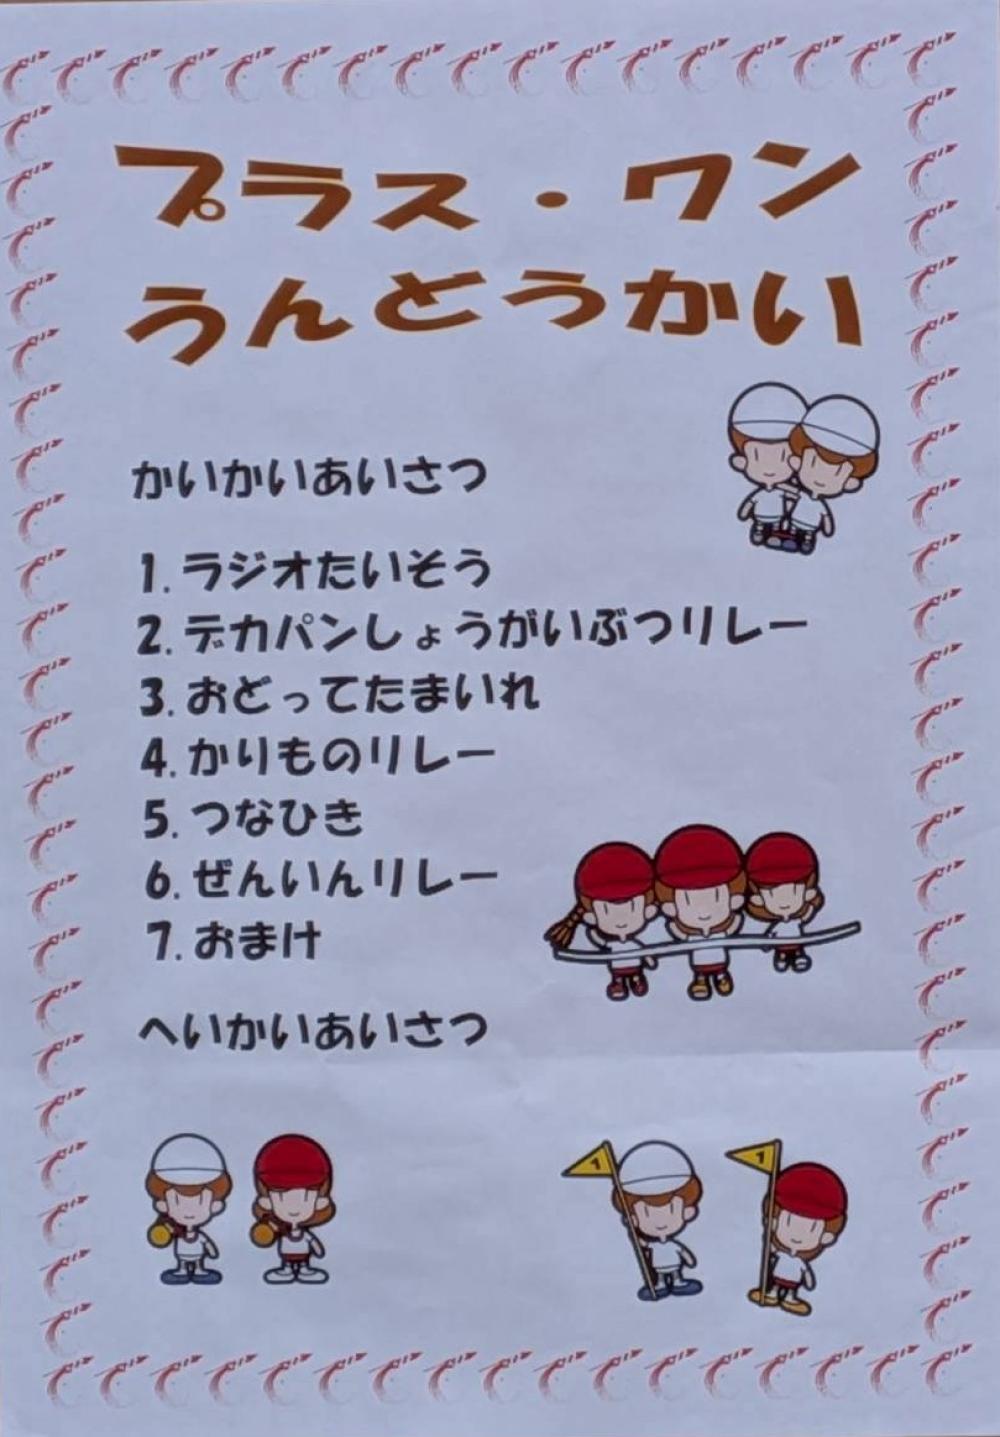 プラス・ワン
うんどうかい
かいかいあいさつ
1.ラジオたいそう
2.デカパンしょうがいぶつリレー
3.おどってたまいれ
4.かりものリレー
5.つなひき
6.ぜんいんリレー
7.おまけ
へいかいあいさつ
1
1